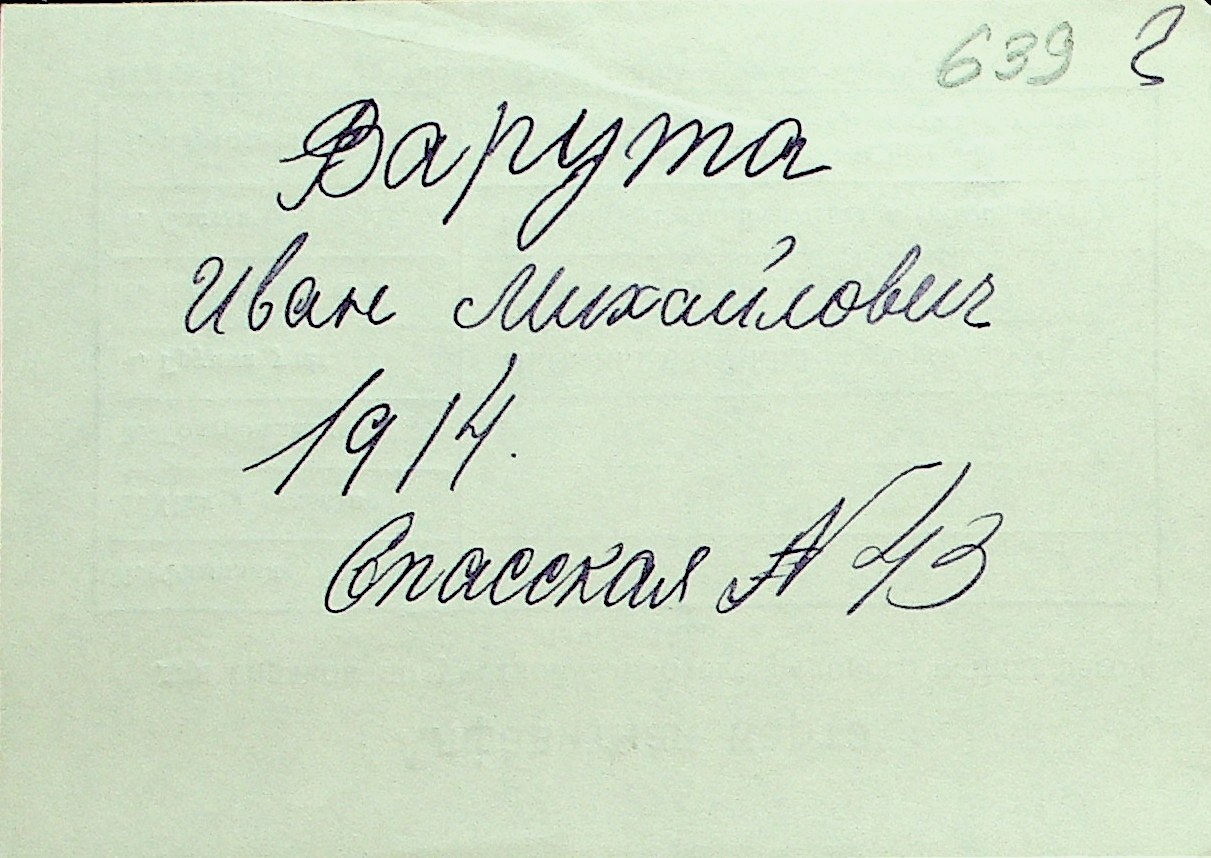 639
Варута
Иван Михайлович
1914.
Спасская № 43